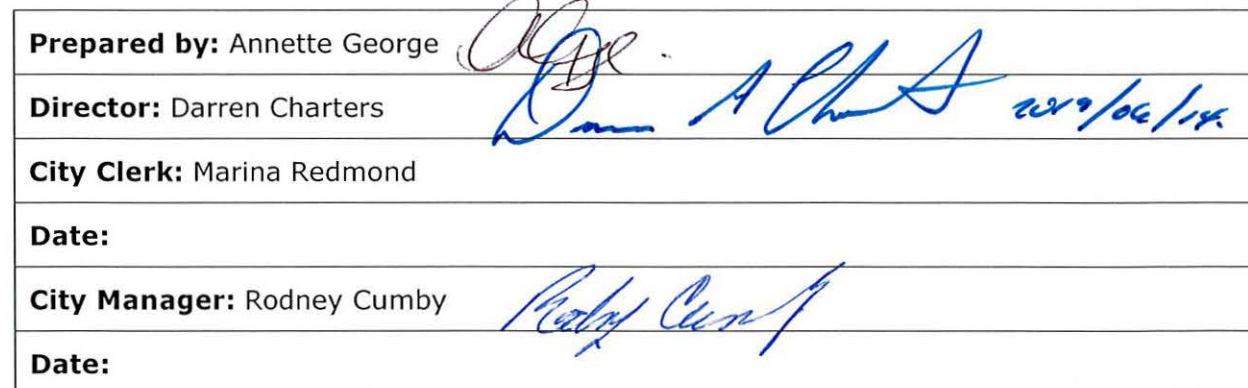 Prepared by: Annette George
Director: Darren Charters 2019/06/14.
City Clerk: Marina Redmond
Date:
City Manager: Rodney Cumby Rodney Cumby
Date: